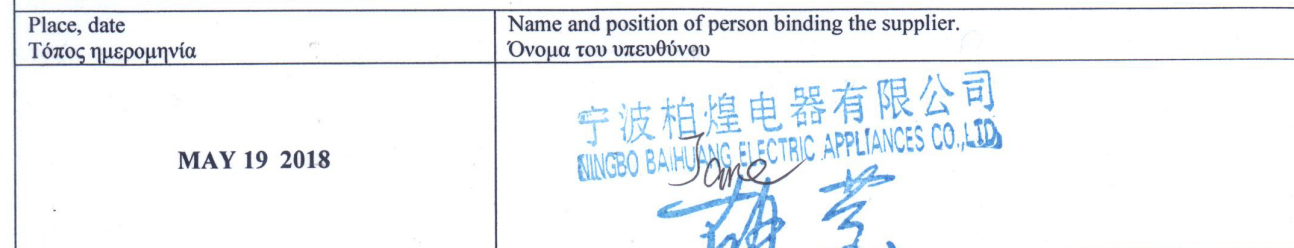 Place, date
Τόπος ημερομηνία
Name and position of person binding the supplier.
Όνομα του υπευθύνου
MAY 19 2018
宁波柏煌电器有限公司
NINGBO BAIHUANG ELECTRIC APPLIANCES CO.,LTD.
Jane